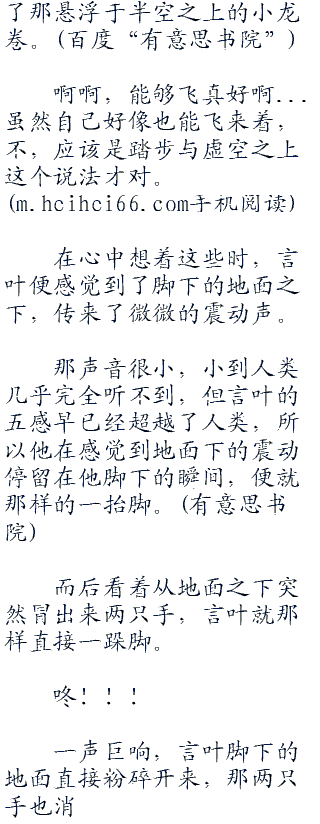 了那悬浮于半空之上的小龙
卷。(百度“有意思书院”)
啊啊，能够飞真好啊...
虽然自己好像也能飞来着，
不，应该是踏步与虚空之上
这个说法才对。
(m.hcihci66.com手机阅读)
在心中想着这些时，言
叶便感觉到了脚下的地面之
下，传来了微微的震动声。
那声音很小，小到人类
几乎完全听不到，但言叶的
五感早已经超越了人类，所
以他在感觉到地面下的震动
停留在他脚下的瞬间，便就
那样的一抬脚。(有意思书
院)
而后看着从地面之下突
然冒出来两只手，言叶就那
样直接一跺脚。
咚！！！
一声巨响，言叶脚下的
地面直接粉碎开来，那两只
手也消